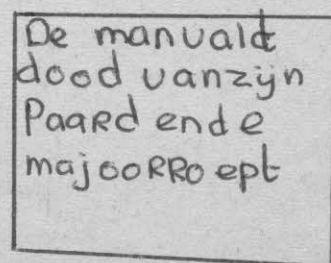 De manvald
dood vanzijn
Paard ende
majoorroept